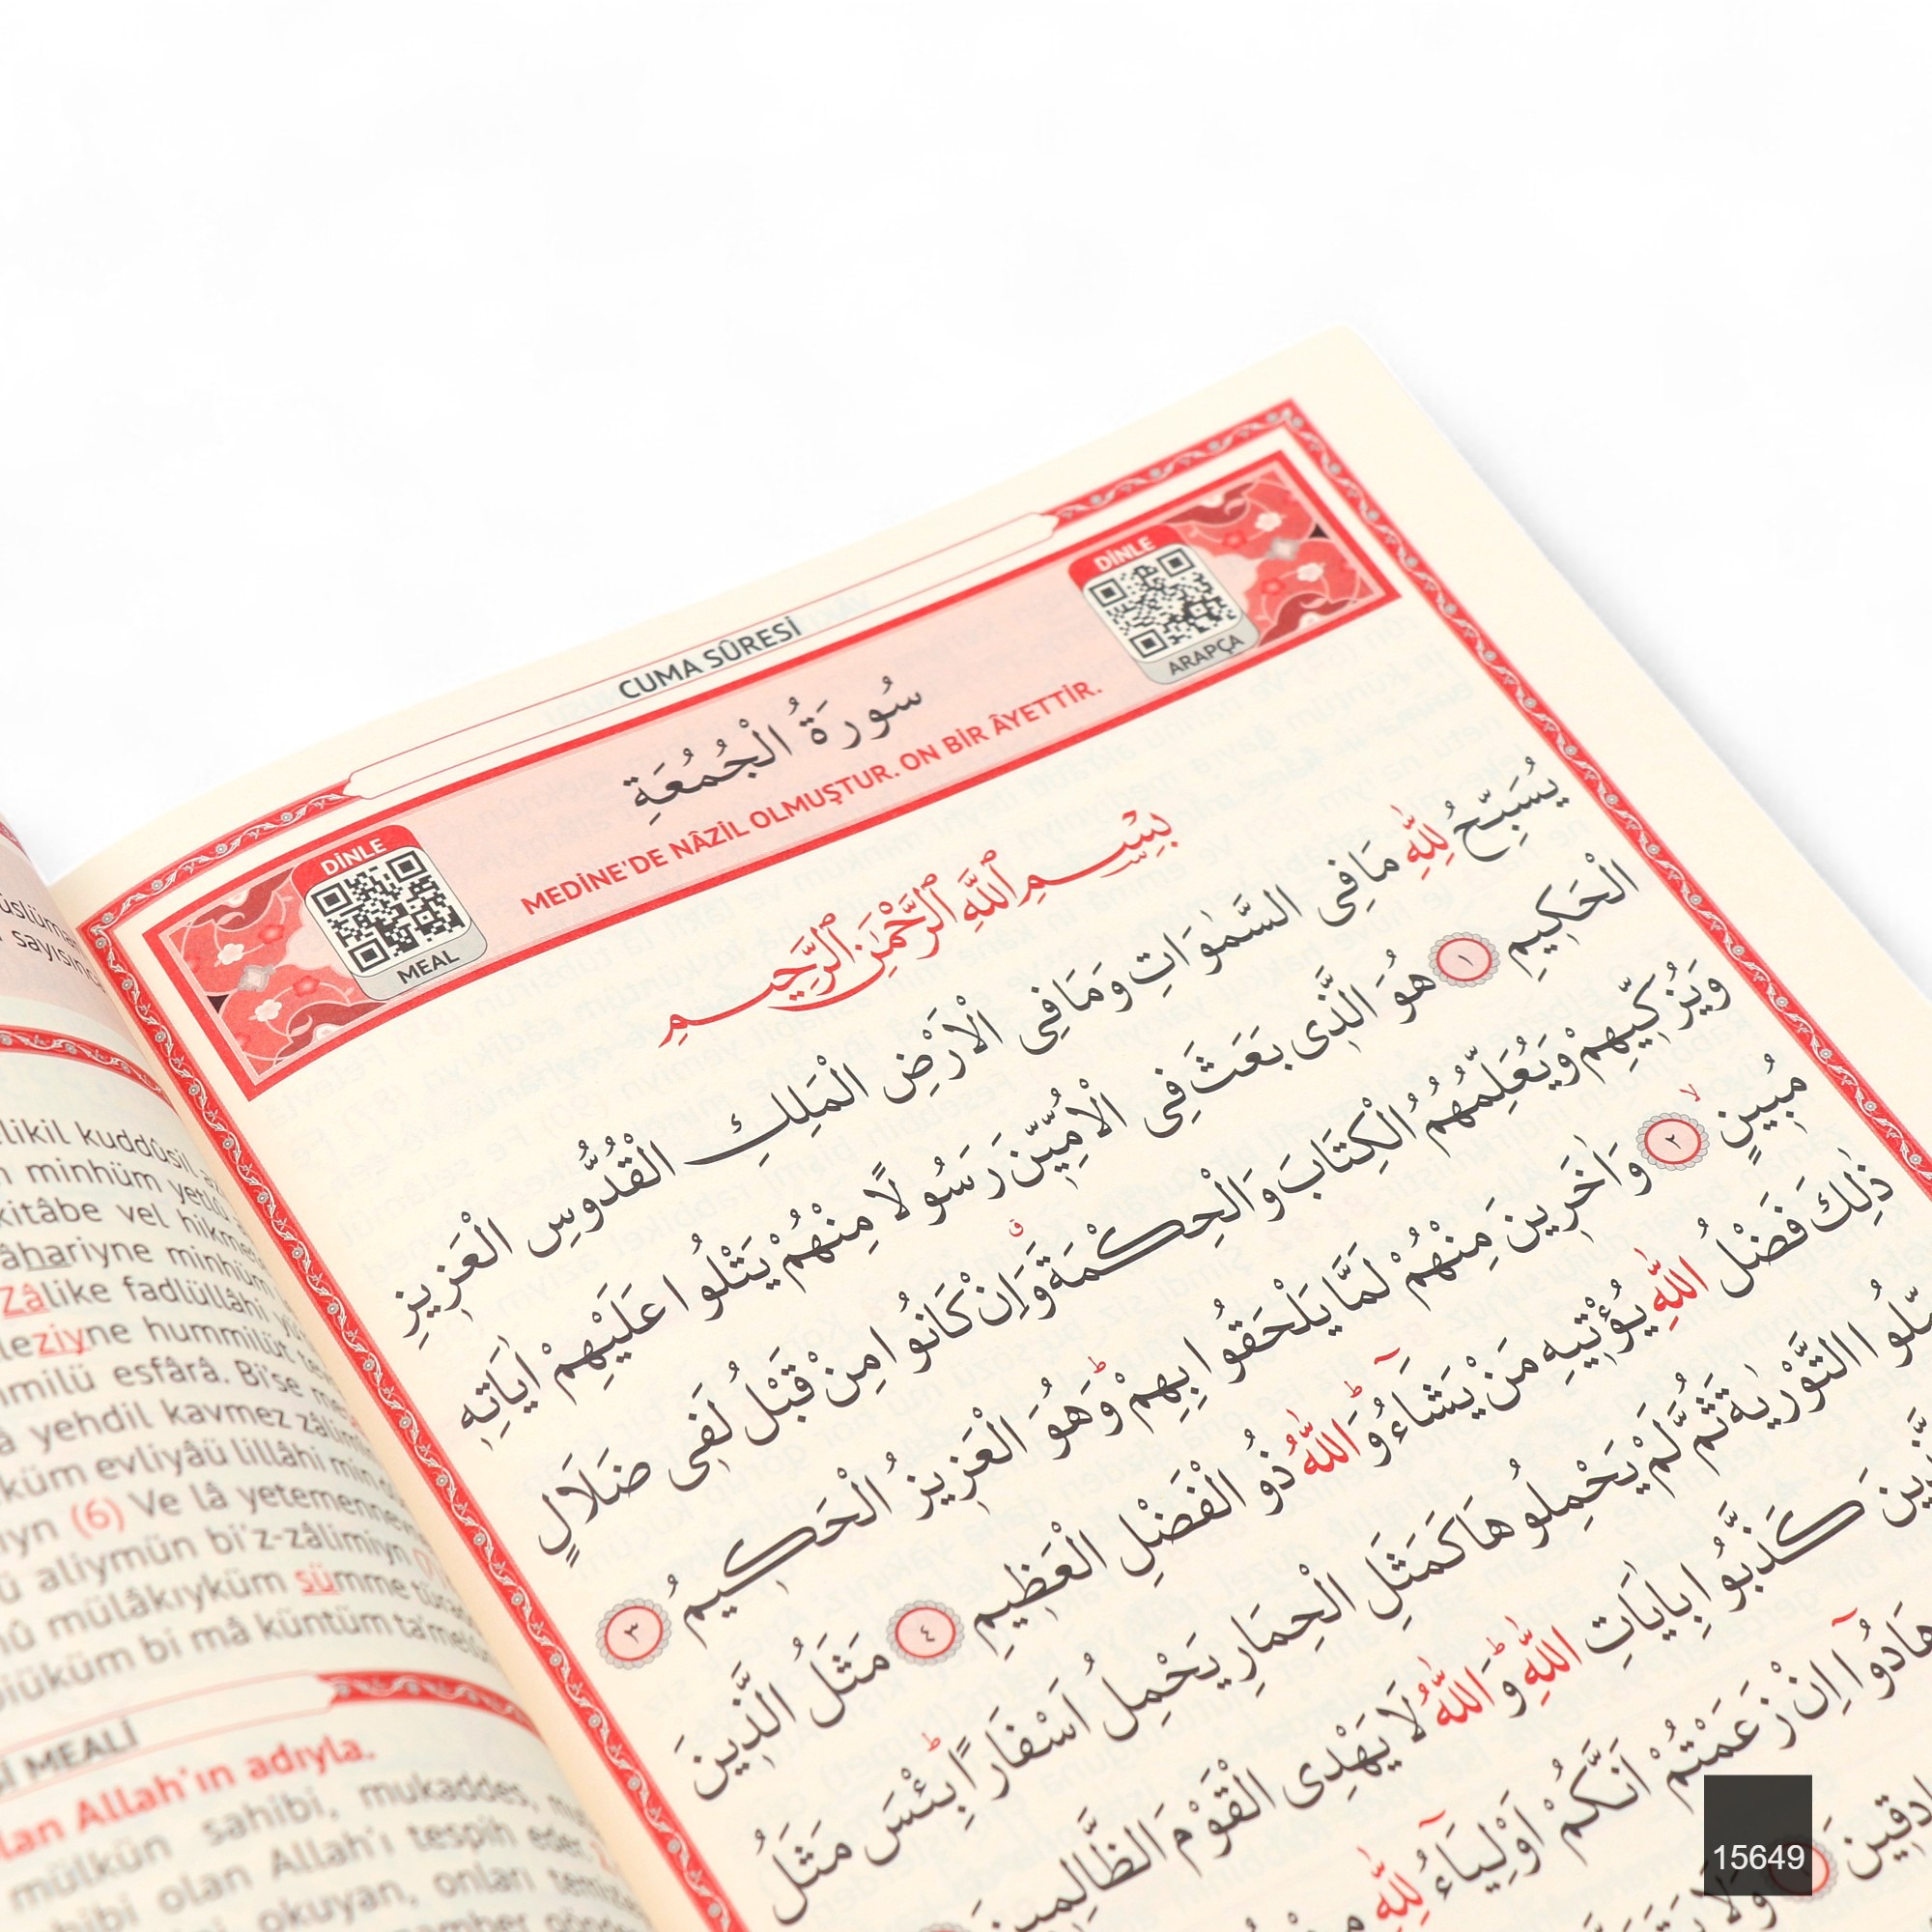 CUMA SÛRESİ
DİNLE
MEAL
DİNLE
ARAPÇA
سُورَةُ الْجُمُعَةِ
MEDİNE'DE NÂZİL OLMUŞTUR. ON BİR ÂYETTİR.
بِسْمِ اللَّهِ الرَّحْمٰنِ الرَّحِيمِ
يُسَبِّحُ لِلّٰهِ مَا فِى السَّمٰوَاتِ وَمَا فِى الْاَرْضِ الْمَلِكِ الْقُدُّوسِ الْعَزِيزِ
الْحَكِيمِ ١ هُوَ الَّذِى بَعَثَ فِى الْاُمِّيّنَ رَسُولًا مِنْهُمْ يَتْلُوا عَلَيْهِمْ اٰيَاتِهِ
وَيُزَكِّيهِمْ وَيُعَلِّمُهُمُ الْكِتَابَ وَالْحِكْمَةَ وَاِنْ كَانُوا مِنْ قَبْلُ لَفِى ضَلَالٍ
مُبِينٍ ٢ وَاٰخَرِينَ مِنْهُمْ لَمَّا يَلْحَقُوا بِهِمْ وَهُوَ الْعَزِيزُ الْحَكِيمُ ٣
ذٰلِكَ فَضْلُ اللّٰهِ يُؤْتِيهِ مَنْ يَشَاءُ وَاللّٰهُ ذُو الْفَضْلِ الْعَظِيمِ ٤ مَثَلُ الَّذِينَ
التَّوْرٰيةَ ثُمَّ لَمْ يَحْمِلُوهَا كَمَثَلِ الْحِمَارِ يَحْمِلُ اَسْفَارًا بِئْسَ مَثَلُ
كَذَّبُوا بِاٰيَاتِ اللّٰهِ وَاللّٰهُ لَا يَهْدِى الْقَوْمَ الظَّالِمِينَ
هَادُوا اِنْ زَعَمْتُمْ اَنَّكُمْ اَوْلِيَاءُ لِلّٰهِ
likil kuddûsil
minhüm yetlû
kitâbe vel hikmete
hariyne minhüm
Zâlike fadlüllâhi
leziyne hummilüt
esfârâ. Bi'se
yehdil kavmez zâlimiyn
küm evliyâü lillâhi min
(6) Ve lâ yetemennevnehû
aliymün bi'z-zâlimiyn
mülâkıyküm sümme
biüküm bi mâ küntüm ta'melûn
MEALİ
Allah'ın adıyla.
mülkün sahibi, mukaddes,
olan Allah'ı tespih eder.
okuyan, onları
15649